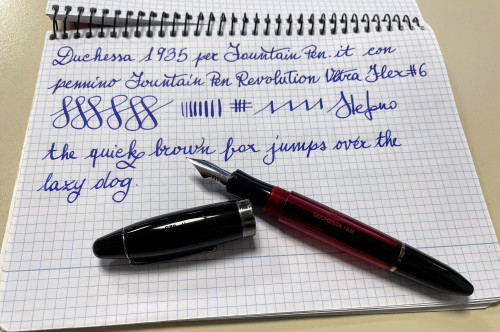 Duchessa 1935 per Fountain Pen.it con
pennino Fountain Pen Revolution Ultra Flex #6
Stefano
the quick brown fox jumps over the
lazy dog.
DUCHESSA 1935